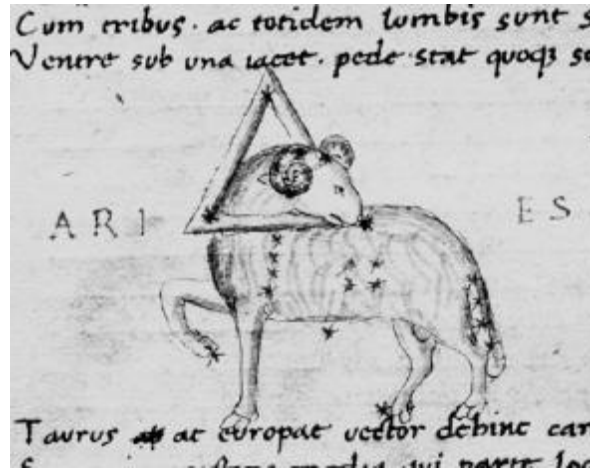 Cum tribus · ac totidem lumbis sunt s
Ventre sub una iacet · pede stat quoqꝫ se
ARI ES
Taurus at europae vector dehinc car
media qui parte loc